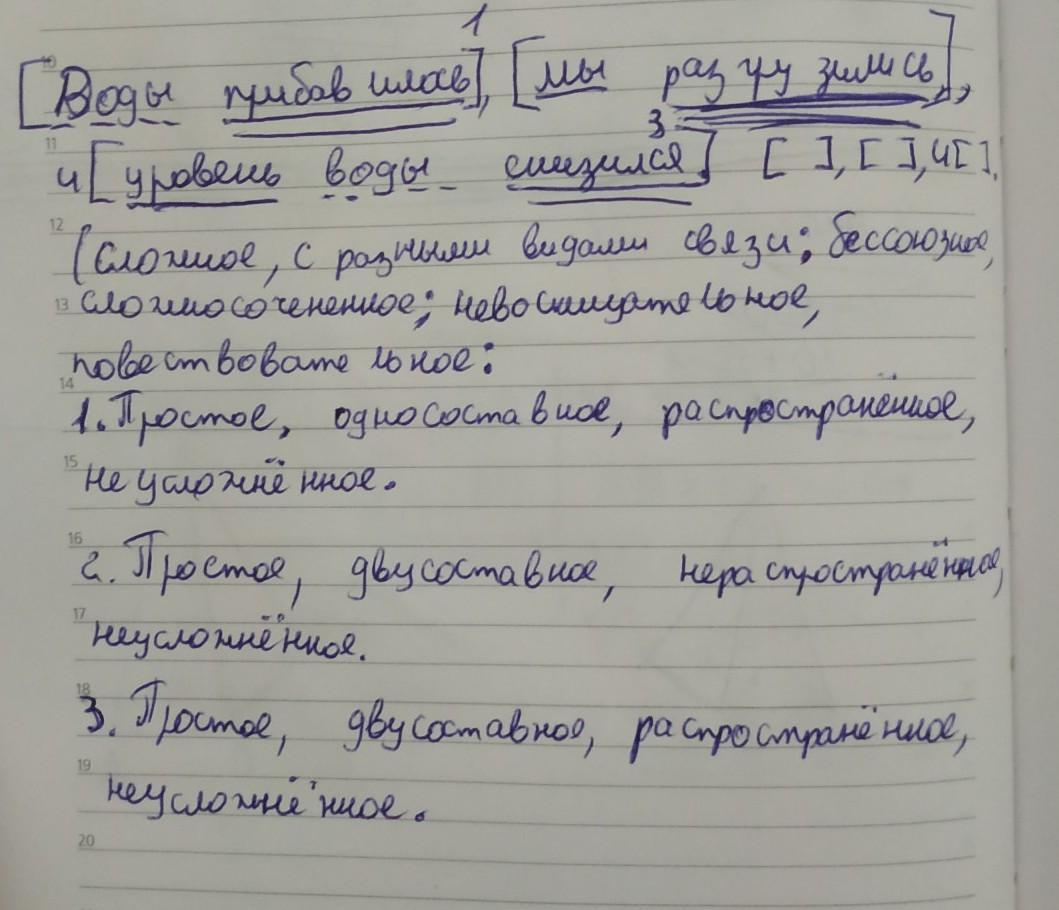 1
[Воды прибавилась], [мы разгрузились],
3
и [уровень воды снизился] [ ], [ ], и [ ].
(Сложное, с разными видами связи; бессоюзное,
сложносочененное; невосклицательное,
повествовательное:
1. Простое, односоставное, распространённое,
неусложнённое.
2. Простое, двусоставное, нераспространённое,
неусложнённое.
3. Простое, двусоставное, распространённое,
неусложнённое.
10
11
12
13
14
15
16
17
18
19
20